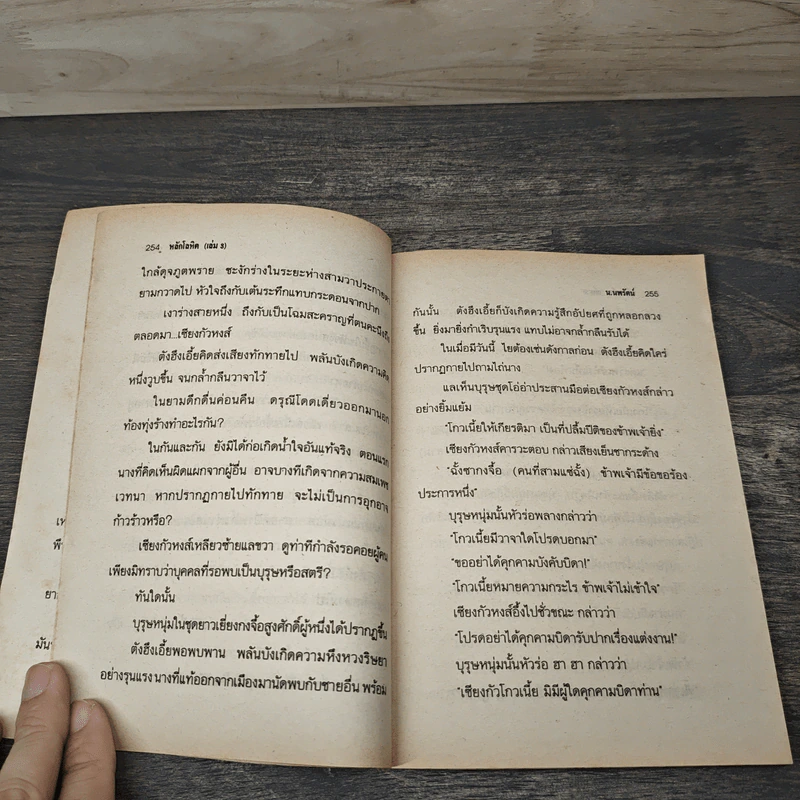 254 หลักโลหิต (เล่ม 3)
ใกล้ดุจภูตพราย ชะงักร่างในระยะห่างสามวาประกายตา
ยามกวาดไป หัวใจถึงกับเต้นระทึกแทบกระดอนจากปาก
เงาร่างสายหนึ่ง ถึงกับเป็นโฉมสะคราญที่ตนคะนึงถึง
ตลอดมา...เซียงกัวหงส์
ตังฮึงเอี้ยคิดส่งเสียงทักทายไป พลันบังเกิดความคิด
หนึ่งวูบขึ้น จนกล้ำกลืนวาจาไว้
ในยามดึกดื่นค่อนคืน ดรุณีโดดเดี่ยวออกมานอก
ท้องทุ่งร้างทำอะไรกัน?
ในกันและกัน ยังมิได้ก่อเกิดน้ำใจอันแท้จริง ตอนแรก
นางที่คิดเห็นผิดแผกจากผู้อื่น อาจบางทีเกิดจากความสมเพช
เวทนา หากปรากฏกายไปทักทาย จะไม่เป็นการอุกอาจ
ก้าวร้าวหรือ?
เซียงกัวหงส์เหลียวซ้ายแลขวา ดูท่าทีกำลังรอคอยผู้คน
เพียงมิทราบว่าบุคคลที่รอพบเป็นบุรุษหรือสตรี?
ทันใดนั้น
บุรุษหนุ่มในชุดยาวเยี่ยงกงจื้อสูงศักดิ์ผู้หนึ่งได้ปรากฏขึ้น
ตังฮึงเอี้ยพอพบพาน พลันบังเกิดความหึงหวงริษยา
อย่างรุนแรง นางที่แท้ออกจากเมืองมานัดพบกับชายอื่น พร้อม
น.นพรัตน์ 255
กันนั้น ตังฮึงเอี้ยก็บังเกิดความรู้สึกอัปยศที่ถูกหลอกลวง
ขึ้น ยิ่งมายิ่งกำเริบรุนแรง แทบไม่อาจกล้ำกลืนรับได้
ในเมื่อมีวันนี้ ไยต้องเช่นดังกาลก่อน ตังฮึงเอี้ยคิดใคร่
ปรากฏกายไปถามไถ่นาง
แลเห็นบุรุษชุดโอ่อ่าประสานมือต่อเซียงกัวหงส์กล่าว
อย่างยิ้มแย้ม
"โกวเนี้ยให้เกียรติมา เป็นที่ปลื้มปิติของข้าพเจ้ายิ่ง"
เซียงกัวหงส์คารวะตอบ กล่าวเสียงเย็นชากระด้าง
"ฉั้งซากงจื้อ (คนที่สามแซ่ฉั้ง) ข้าพเจ้ามีข้อขอร้อง
ประการหนึ่ง"
บุรุษหนุ่มนั้นหัวร่อพลางกล่าวว่า
"โกวเนี้ยมีวาจาใดโปรดบอกมา"
"ขออย่าได้คุกคามบังคับบิดา!"
"โกวเนี้ยหมายความกระไร ข้าพเจ้าไม่เข้าใจ"
เซียงกัวหงส์อึ้งไปชั่วขณะ กล่าวว่า
"โปรดอย่าได้คุกคามบิดารับปากเรื่องแต่งงาน!"
บุรุษหนุ่มนั้นหัวร่อ ฮา ฮา กล่าวว่า
"เซียงกัวโกวเนี้ย มิมีผู้ใดคุกคามบิดาท่าน"